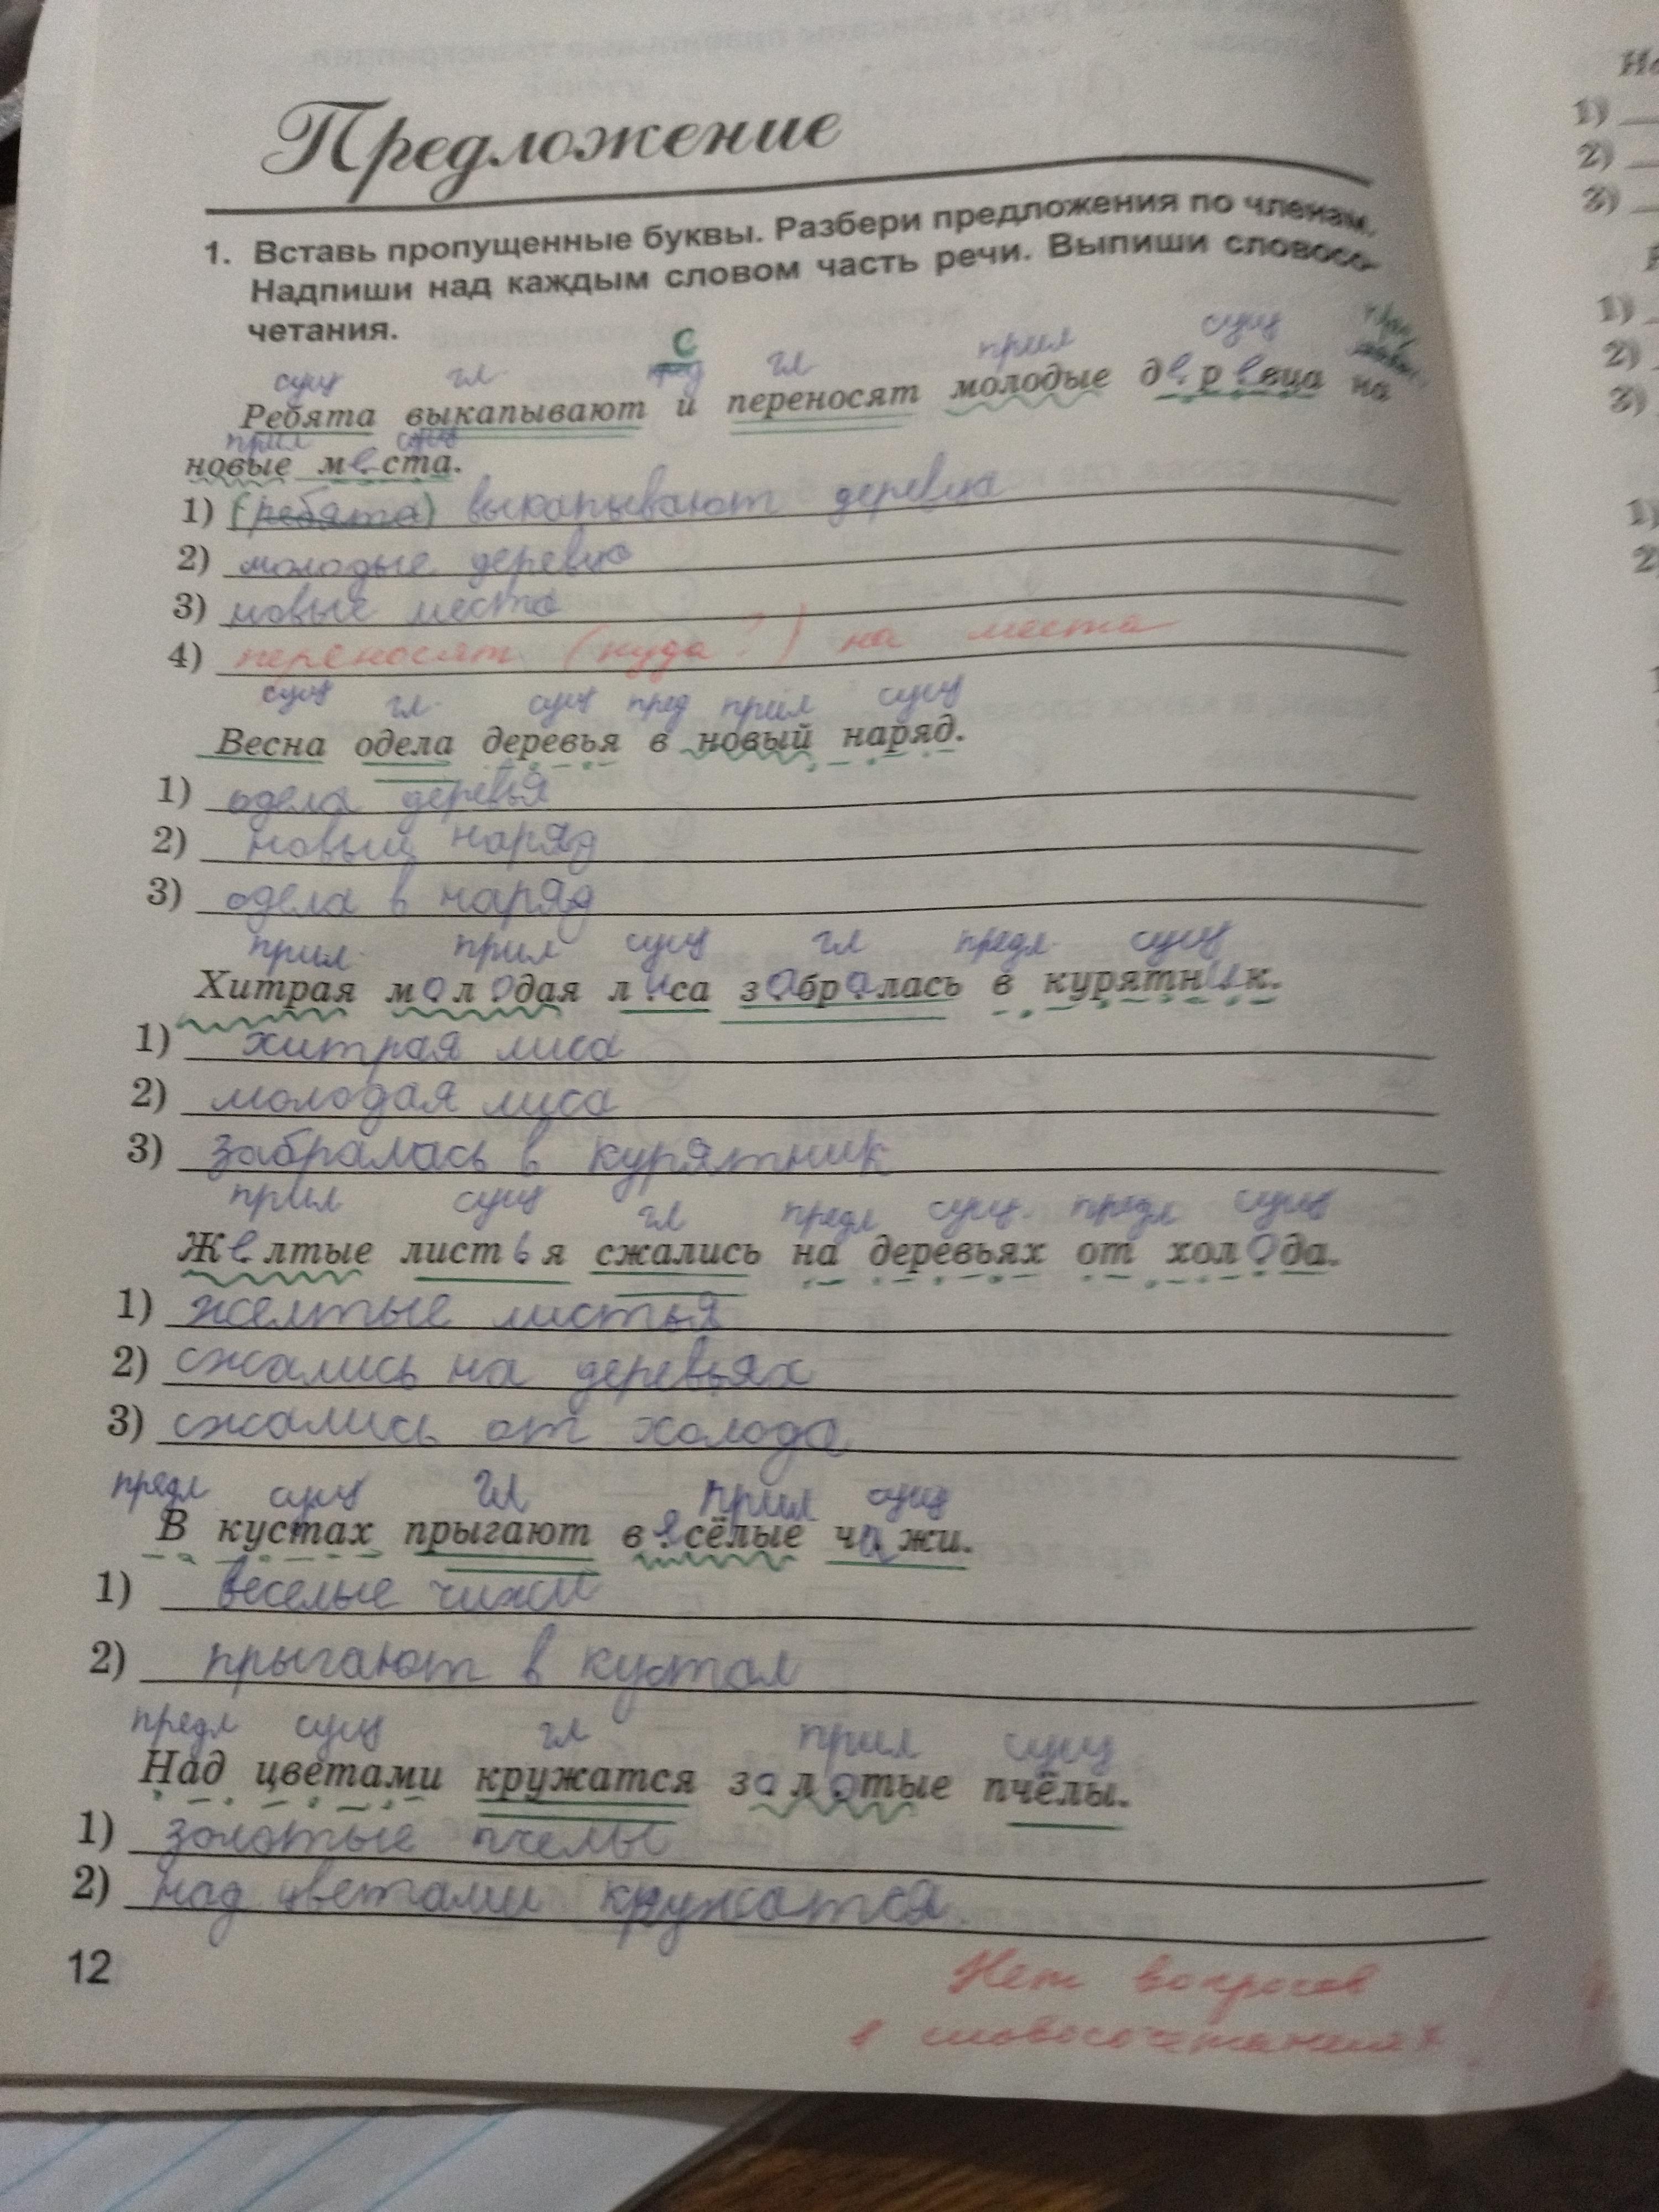 Предложение
1. Вставь пропущенные буквы. Разбери предложения по членам.
Надпиши над каждым словом часть речи. Выпиши словосо-
четания.
сущ гл. с гл прил сущ
Ребята выкапывают и переносят молодые деревца на
прил сущ
новые места.
1) (ребята) выкапывают деревца
2) молодые деревца
3) новые места
4) переносят (куда?) на места
сущ гл. сущ пред прил сущ
Весна одела деревья в новый наряд.
1) одела деревья
2) новый наряд
3) одела в наряд
прил. прил сущ гл предл. сущ
Хитрая молодая лиса забралась в курятник.
1) хитрая лиса
2) молодая лиса
3) забралась в курятник
прил сущ гл предл сущ. предл сущ
Желтые листья сжались на деревьях от холода.
1) желтые листья
2) сжались на деревьях
3) сжались от холода
предл сущ гл прил сущ
В кустах прыгают весёлые чижи.
1) веселые чижи
2) прыгают в кустах
предл сущ гл прил сущ
Над цветами кружатся золотые пчёлы.
1) золотые пчелы
2) над цветами кружатся.
12
Нет вопросов
в словосочетаниях!
1)
2)
3)
1)
2)
3)
1)
2)